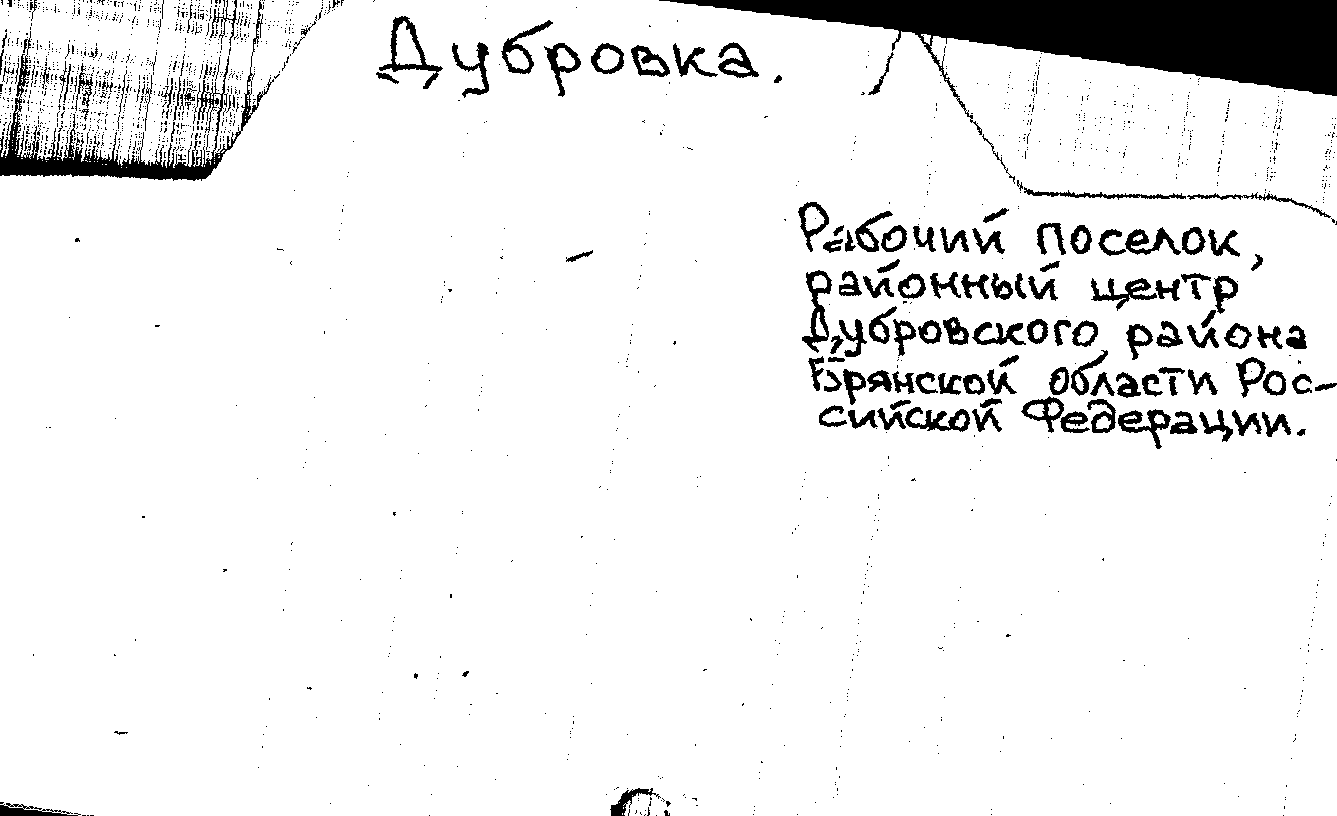 Дубровка.
Рабочий поселок,
районный центр
Дубровского района
Брянской области Рос-
сийской Федерации.